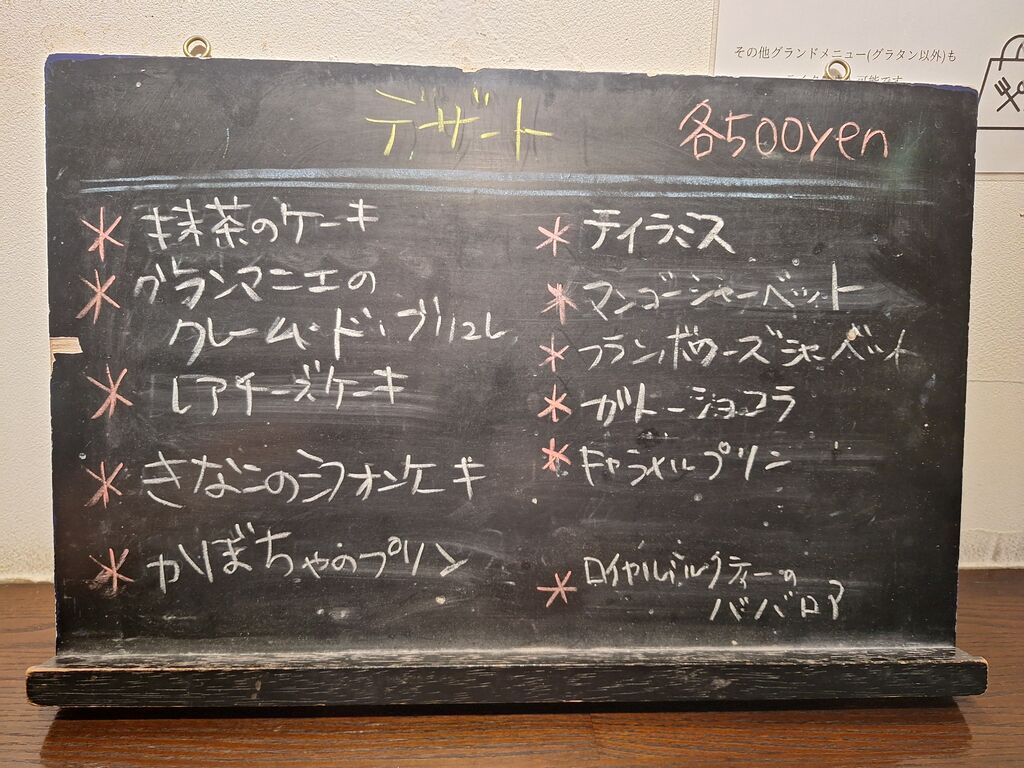 その他グランドメニュー(グラタン以外)も
可能です
デザート
各500yen
* 抹茶のケーキ
* グランマニエの
クレーム・ド・ブリュレ
* レアチーズケーキ
* きなこのシフォンケーキ
* かぼちゃのプリン
* ティラミス
* マンゴーシャーベット
* フランボワーズシャーベット
* ガトーショコラ
* キャラメルプリン
* ロイヤルミルクティーの
ババロア